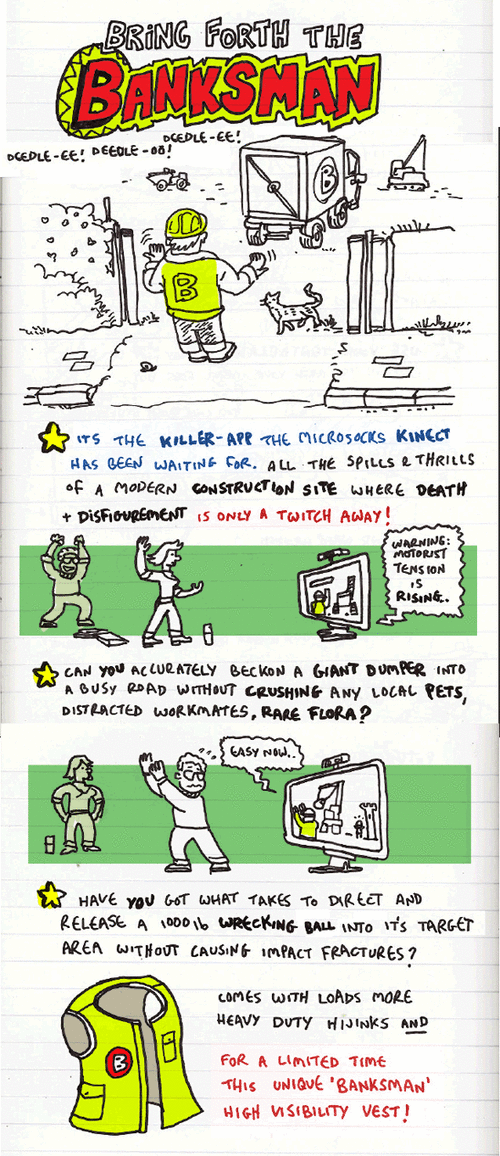 BRING FORTH THE
BANKSMAN
DEEDLE-EE!
DEEDLE-EE! DEEDLE-OO!
B
B
ITS THE KILLER-APP THE MICROSOCKS KINECT
HAS BEEN WAITING FOR. ALL THE SPILLS & THRILLS
OF A MODERN CONSTRUCTION SITE WHERE DEATH
+ DISFIGUREMENT IS ONLY A TWITCH AWAY!
WARNING:
MOTORIST
TENSION
IS
RISING..
CAN YOU ACCURATELY BECKON A GIANT DUMPER INTO
A BUSY ROAD WITHOUT CRUSHING ANY LOCAL PETS,
DISTRACTED WORKMATES, RARE FLORA?
EASY NOW..
HAVE YOU GOT WHAT TAKES TO DIRECT AND
RELEASE A 1000lb WRECKING BALL INTO IT'S TARGET
AREA WITHOUT CAUSING IMPACT FRACTURES?
COMES WITH LOADS MORE
HEAVY DUTY HIJINKS AND
B
FOR A LIMITED TIME
THIS UNIQUE 'BANKSMAN'
HIGH VISIBILITY VEST!